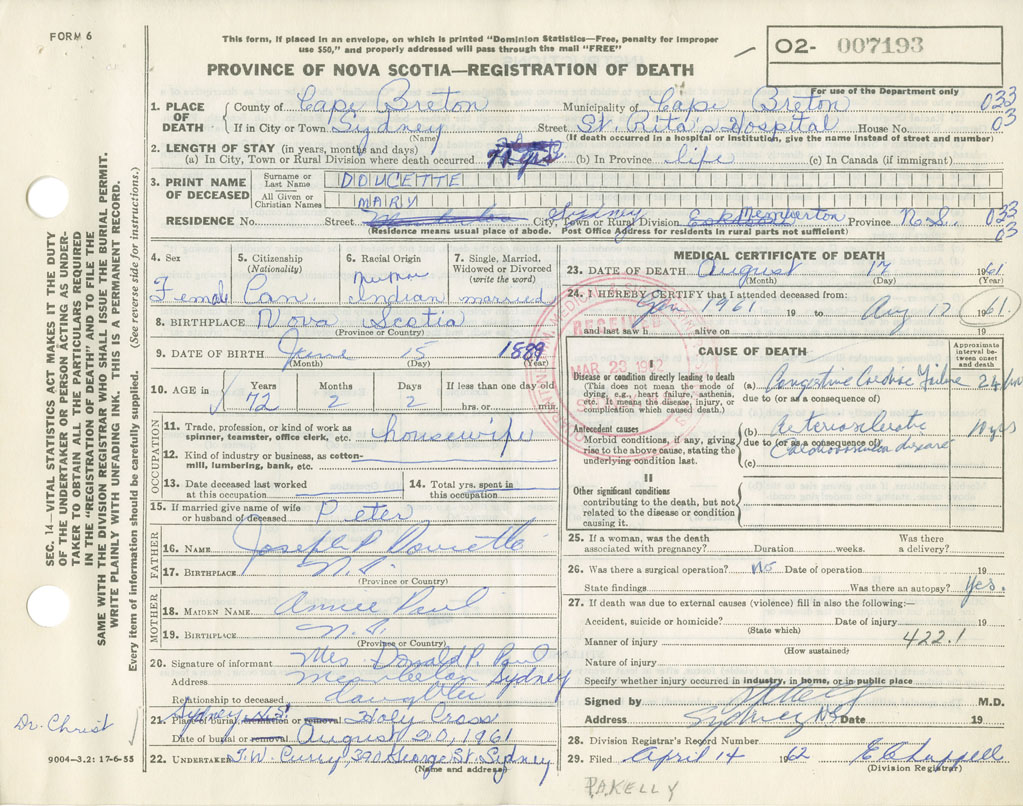 FORM 6
This form, if placed in an envelope, on which is printed "Dominion Statistics—Free, penalty for improper
use $50," and properly addressed will pass through the mail "FREE"
02- 007193
For use of the Department only
PROVINCE OF NOVA SCOTIA—REGISTRATION OF DEATH
1. PLACE OF DEATH
County of Cape Breton Municipality of Cape Breton 033
If in City or Town Sydney Street St. Rita's Hospital House No. 03
(Name) (If death occurred in a hospital or institution, give the name instead of street and number)
2. LENGTH OF STAY (in years, months and days)
(a) In City, Town or Rural Division where death occurred (b) In Province life (c) In Canada (if immigrant)
3. PRINT NAME OF DECEASED
Surname or Last Name DOUCETTE
All Given or Christian Names MARY
RESIDENCE No. Street City, Town or Rural Division Sydney Membertou Province N.S. 033
03
(Residence means usual place of abode. Post Office Address for residents in rural parts not sufficient)
4. Sex Female
5. Citizenship (Nationality) Can.
6. Racial Origin Indian
7. Single, Married, Widowed or Divorced (write the word) married
8. BIRTHPLACE Nova Scotia
(Province or Country)
9. DATE OF BIRTH June 15 1889
(Month) (Day) (Year)
10. AGE in Years 72 Months 2 Days 2 If less than one day old hrs. or min.
OCCUPATION
11. Trade, profession or kind of work as spinner, teamster, office clerk, etc. housewife
12. Kind of industry or business, as cotton-mill, lumbering, bank, etc.
13. Date deceased last worked at this occupation
14. Total yrs. spent in this occupation
15. If married give name of wife or husband of deceased Peter
FATHER
16. NAME Joseph P Doucette
17. BIRTHPLACE N.S.
(Province or Country)
MOTHER
18. MAIDEN NAME Annie Paul
19. BIRTHPLACE N.S.
(Province or Country)
20. Signature of informant Mrs. Donald P. Paul
Address Membertou Sydney
Relationship to deceased daughter
21. Place of burial, cremation or removal Sydney N.S. Holy Cross
Date of burial or removal August 20, 1961
22. UNDERTAKER T.W. Curry, 390 George St. Sydney
(Name and address)
MEDICAL CERTIFICATE OF DEATH
23. DATE OF DEATH August 17 1961
(Month) (Day) (Year)
24. I HEREBY CERTIFY that I attended deceased from:
Jan 1961 19 to Aug 17 1961.
and last saw h alive on 19
RECEIVED
MAR 29 1962
CAUSE OF DEATH
Approximate interval between onset and death
I
Disease or condition directly leading to death
(This does not mean the mode of dying, e.g., heart failure, asthenia, etc. It means the disease, injury, or complication which caused death.)
(a) Congestive Cardiac Failure
due to (or as a consequence of)
Antecedent causes
Morbid conditions, if any, giving rise to the above cause, stating the underlying condition last.
(b) Arteriosclerotic 10 yrs
due to (or as a consequence of)
(c) disease
II
Other significant conditions
contributing to the death, but not related to the disease or condition causing it.
25. If a woman, was the death associated with pregnancy? Duration weeks. Was there a delivery?
26. Was there a surgical operation? No Date of operation 19
State findings Was there an autopsy? Yes.
27. If death was due to external causes (violence) fill in also the following:—
Accident, suicide or homicide? Date of injury 19
(State which)
Manner of injury 422.1
(How sustained)
Nature of injury
Specify whether injury occurred in industry, in home, or in public place
Signed by M.D.
Address Sydney NS Date 19
28. Division Registrar's Record Number
29. Filed April 14 1962
(Division Registrar)
P.A.KELLY
SEC. 14—VITAL STATISTICS ACT MAKES IT THE DUTY
OF THE UNDERTAKER OR PERSON ACTING AS UNDER-
TAKER TO OBTAIN ALL THE PARTICULARS REQUIRED
IN THE "REGISTRATION OF DEATH" AND TO FILE THE
SAME WITH THE DIVISION REGISTRAR WHO SHALL ISSUE THE BURIAL PERMIT.
WRITE PLAINLY WITH UNFADING INK. THIS IS A PERMANENT RECORD.
Every item of information should be carefully supplied. (See reverse side for instructions.)
Dr. Christ
9004—3.2: 17-6-55